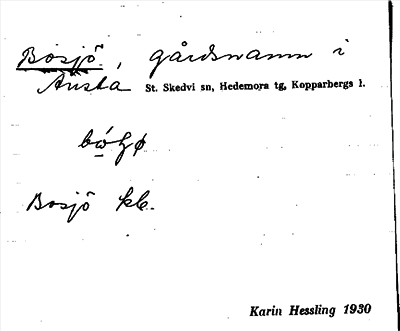 Bosjö, gårdsnamn i
Austa St. Skedvi sn, Hedemora tg, Kopparbergs l.
Bosjö kb.
Karin Hessling 1930